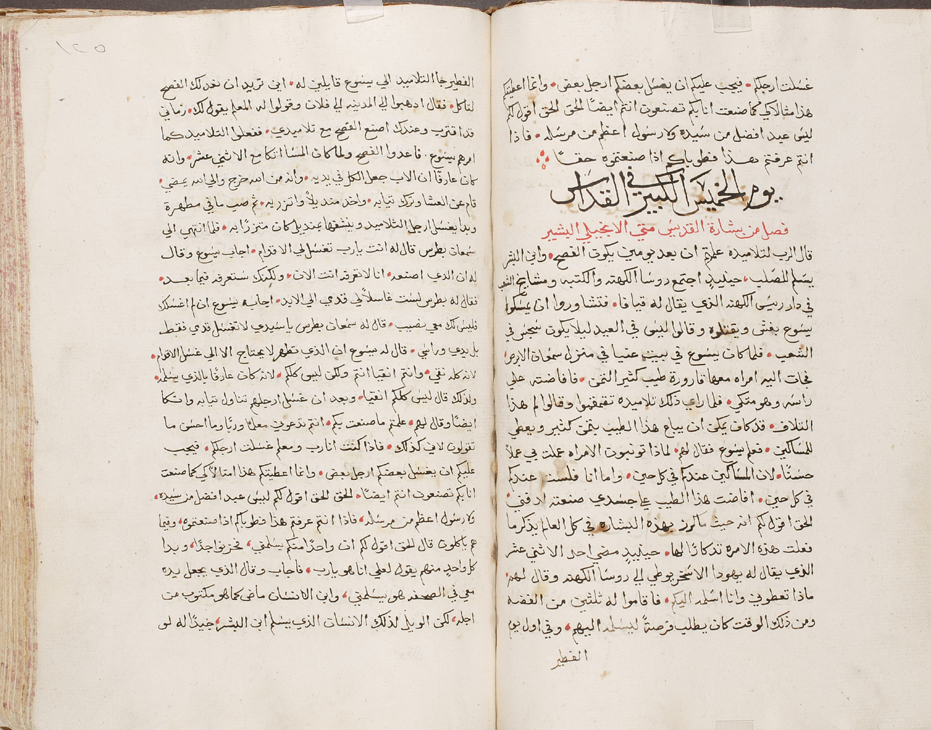 غسلت ارجلكم • فيجب عليكم ان يغسل بعضكم ارجل بعض • وانما اعطيتكم
هذا مثالا لكي كما صنعت انا بكم تصنعون انتم ايضا الحق الحق اقول لكم
ليس عبد افضل من سيده ولا رسول اعظم من مرسله • فاذا
انتم عرفتم هذا فطوباكم اذا صنعتموه حقا
يوم الخميس الكبير في القداس
فصل من بشارة القديس متي الانجيلي البشير
قال الرب لتلاميذه علمتم ان بعد يومين يكون الفصح • وابن البشر
يسلم للصلب • حينيذ اجتمع روسا الكهنه والكتبه ومشايخ الشعب
في دار رييس الكهنه الذي يقال له قيافا • فتشاوروا ان يمسكوا
يسوع بغش ويقتلوه وقالوا ليس في العيد ليلا يكون سجس في
الشعب • فلما كان يسوع في بيت عنيا في منزل سمعان الابرص
فجات اليه امراه معها قارورة طيب كثير الثمن • فافاضته علي
راسه وهو متكي • فلما راي ذلك تلاميذه تقمقموا وقالوا لم هذا
التلاف • قد كان يمكن ان يباع هذا الطيب بثمن كثير ويعطي
للمساكين • فعلم يسوع فقال لهم لماذا تونبون الامراه عملت في عملا
حسنا • لان المساكين عندكم في كل حين • واما انا فلست عندكم
في كل حين • افاضت هذا الطيب علي جسدي صنعته لدفني
الحق اقول لكم انه حيث ما كرز بهذه البشاره في كل العالم يذكر ما
فعلت هذه الامره تذكارا لها • حينيذ مضي احد الاثني عشر
الذي يقال له يهودا الاسخريوطي الي روسا الكهنه وقال لهم
ماذا تعطوني وانا اسلمه اليكم • فاقاموا له ثلثين من الفضه
ومن ذلك الوقت كان يطلب فرصة ليسلمه اليهم • وفي اول يوم
الفطير
١٢٥
الفطير جا التلاميذ الي يسوع قايلين له • اين تريد ان نعد لك الفصح
لتاكل • فقال اذهبوا الي المدينه الي فلان وقولوا له المعلم يقول لك • زماني
قد اقترب وعندك اصنع الفصح مع تلاميذي • ففعلوا التلاميذ كما
امرهم يسوع • فاعدوا الفصح ولما كان المسا اتكا مع الاثني عشر • وانه
كان عارفا ان الاب جعل الكل في يديه • وانه من الله خرج والي الله يمضي •
قام عن العشا وترك ثيابه • واخذ منديلا واتزر به • ثم صب ما في مطهرة
وبدا يغسل ارجل التلاميذ وينشفها بمنديل كان متزرا به • فلما انتهي الي
سمعان بطرس قال له انت يارب تغسل لي الاقدام • اجاب يسوع وقال
له ان الذي اصنعه • انا لا تعرفه انت الان • ولكنك ستعرفه فيما بعد •
فقال له بطرس لست غاسلا لي قدمي الي الابد • اجابه يسوع ان لم اغسلك
فليس لك معي نصيب • قال له سمعان بطرس يا سيدي لا تغسل قدمي فقط
بل يدي وراسي • قال له يسوع ان الذي تطهر لا يحتاج الا الي غسل الاقدام •
لانه كله نقي • وانتم انقيا انتم ولكن ليس كلكم • لانه كان عارفا بالذي يسلمه
ولذلك قال ليس كلكم انقيا • وبعد ان غسل ارجلهم تناول ثيابه واتكا
ايضا وقال لهم • علمتم ما صنعت بكم • انتم تدعوني معلما وربا وما احسن ما
تقولون لاني كذلك • فاذا كنت انا رب ومعلم غسلت ارجلكم • فيجب
عليكم ان يغسل بعضكم ارجل بعض • وانما اعطيتكم هذا امثالا لكي كما صنعت
انا بكم تصنعون انتم ايضا • الحق الحق اقول لكم ليس عبد افضل من سيده •
ولا رسول اعظم من مرسله • فاذا انتم عرفتم هذا فطوباكم اذا صنعتموه • وفيما
هم ياكلون قال الحق اقول لكم ان واحدا منكم يسلمني • فحزنوا جدا • وبدا
كل واحد منهم يقول لعلي انا هو يارب • فاجاب وقال الذي يجعل يده
معي في الصحفه هو يسلمني • وابن الانسان ماض كما هو مكتوب من
اجله • لكن الويل لذلك الانسان الذي يسلم ابن البشر • جيدا له لو